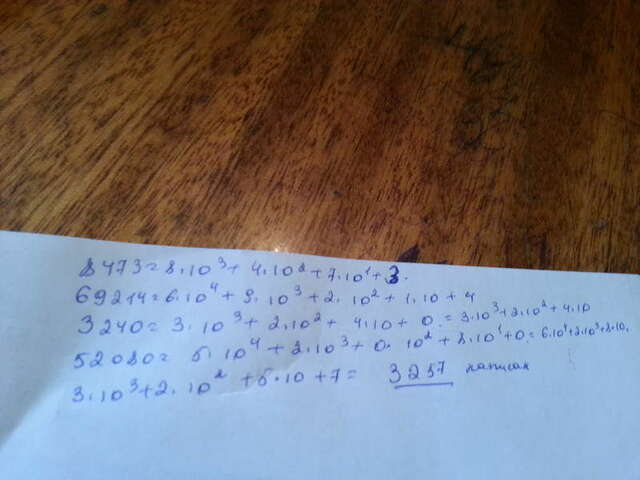 8473=8·10³+4·10²+7·10¹+3.
69214=6·10⁴+9·10³+2·10²+1·10+4
3240=3·10³+2·10²+4·10+0.=3·10³+2·10²+4·10
52080=5·10⁴+2·10³+0·10²+8·10¹+0=6·10⁴+2·10³+8·10.
3·10³+2·10²+5·10+7= 3257 написал